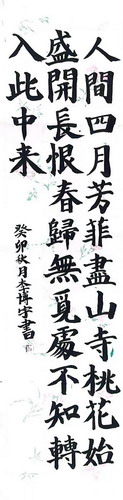 人間四月芳菲盡山寺桃花始
盛開長恨春歸無覓處不知轉
入此中来
癸卯秋月李靖宇書